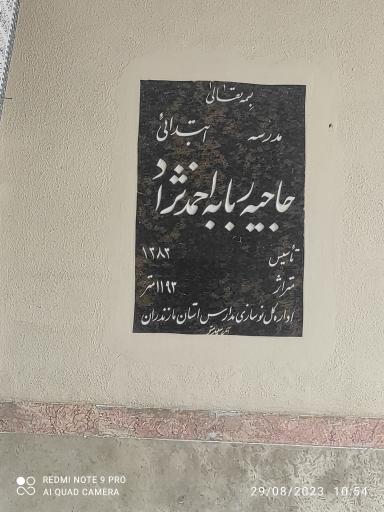 بسمه تعالی
مدرسه ابتدائی
حاجیه ربابه احمدنژاد
تأسیس ۱۳۸۲
متراژ ۱۱۹۲ متر
اداره کل نوسازی مدارس استان مازندران
REDMI NOTE 9 PRO
AI QUAD CAMERA
29/08/2023 10:54